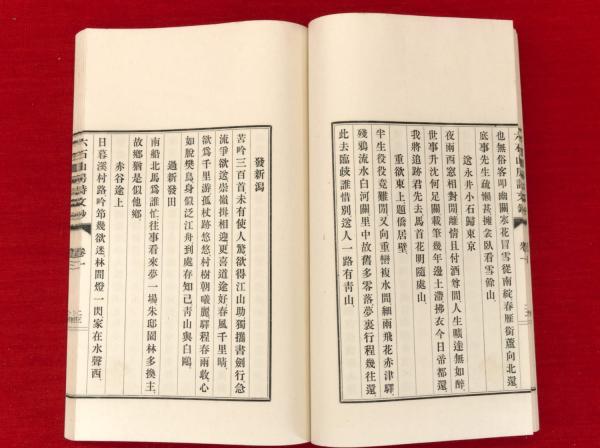 也無俗客叩幽關寒花冒雪從南綻春雁銜蘆向北還
底事先生疏懶甚擁衾臥看雪餘山
送永井小石歸東京
夜雨西窓相對閒離情且付酒尊間人生曠達無如醉
世事升沈何足關載筆幾年邊土滯拂衣今日帝都還
我將追跡君先去馬首花明隨處山
重欲東上題僑居壁
半生役役竟難閒又向重巒複水間細雨飛花赤津驛
殘鴉流水白河關里中故舊多零落夢裏行程幾往還
此去臨歧誰惜別送人一路有靑山
發新潟
苦吟三百首未有使人驚欲得江山助獨攜書劍行急
流爭欲送崇嶺揖相迎更喜道途好春風千里晴
欲爲千里游孤杖跡悠悠村樹朝曦麗驛程春雨收心
如脫樊鳥身似泛江舟到處存知己靑山與白鷗
過新發田
南船北馬爲誰忙往事看來夢一場朱邸園林多換主
故鄉猶是似他鄉
赤谷途上
日暮溪村路吟筇幾欲迷林間燈一閃家在水聲西
六石山房詩文鈔
卷一